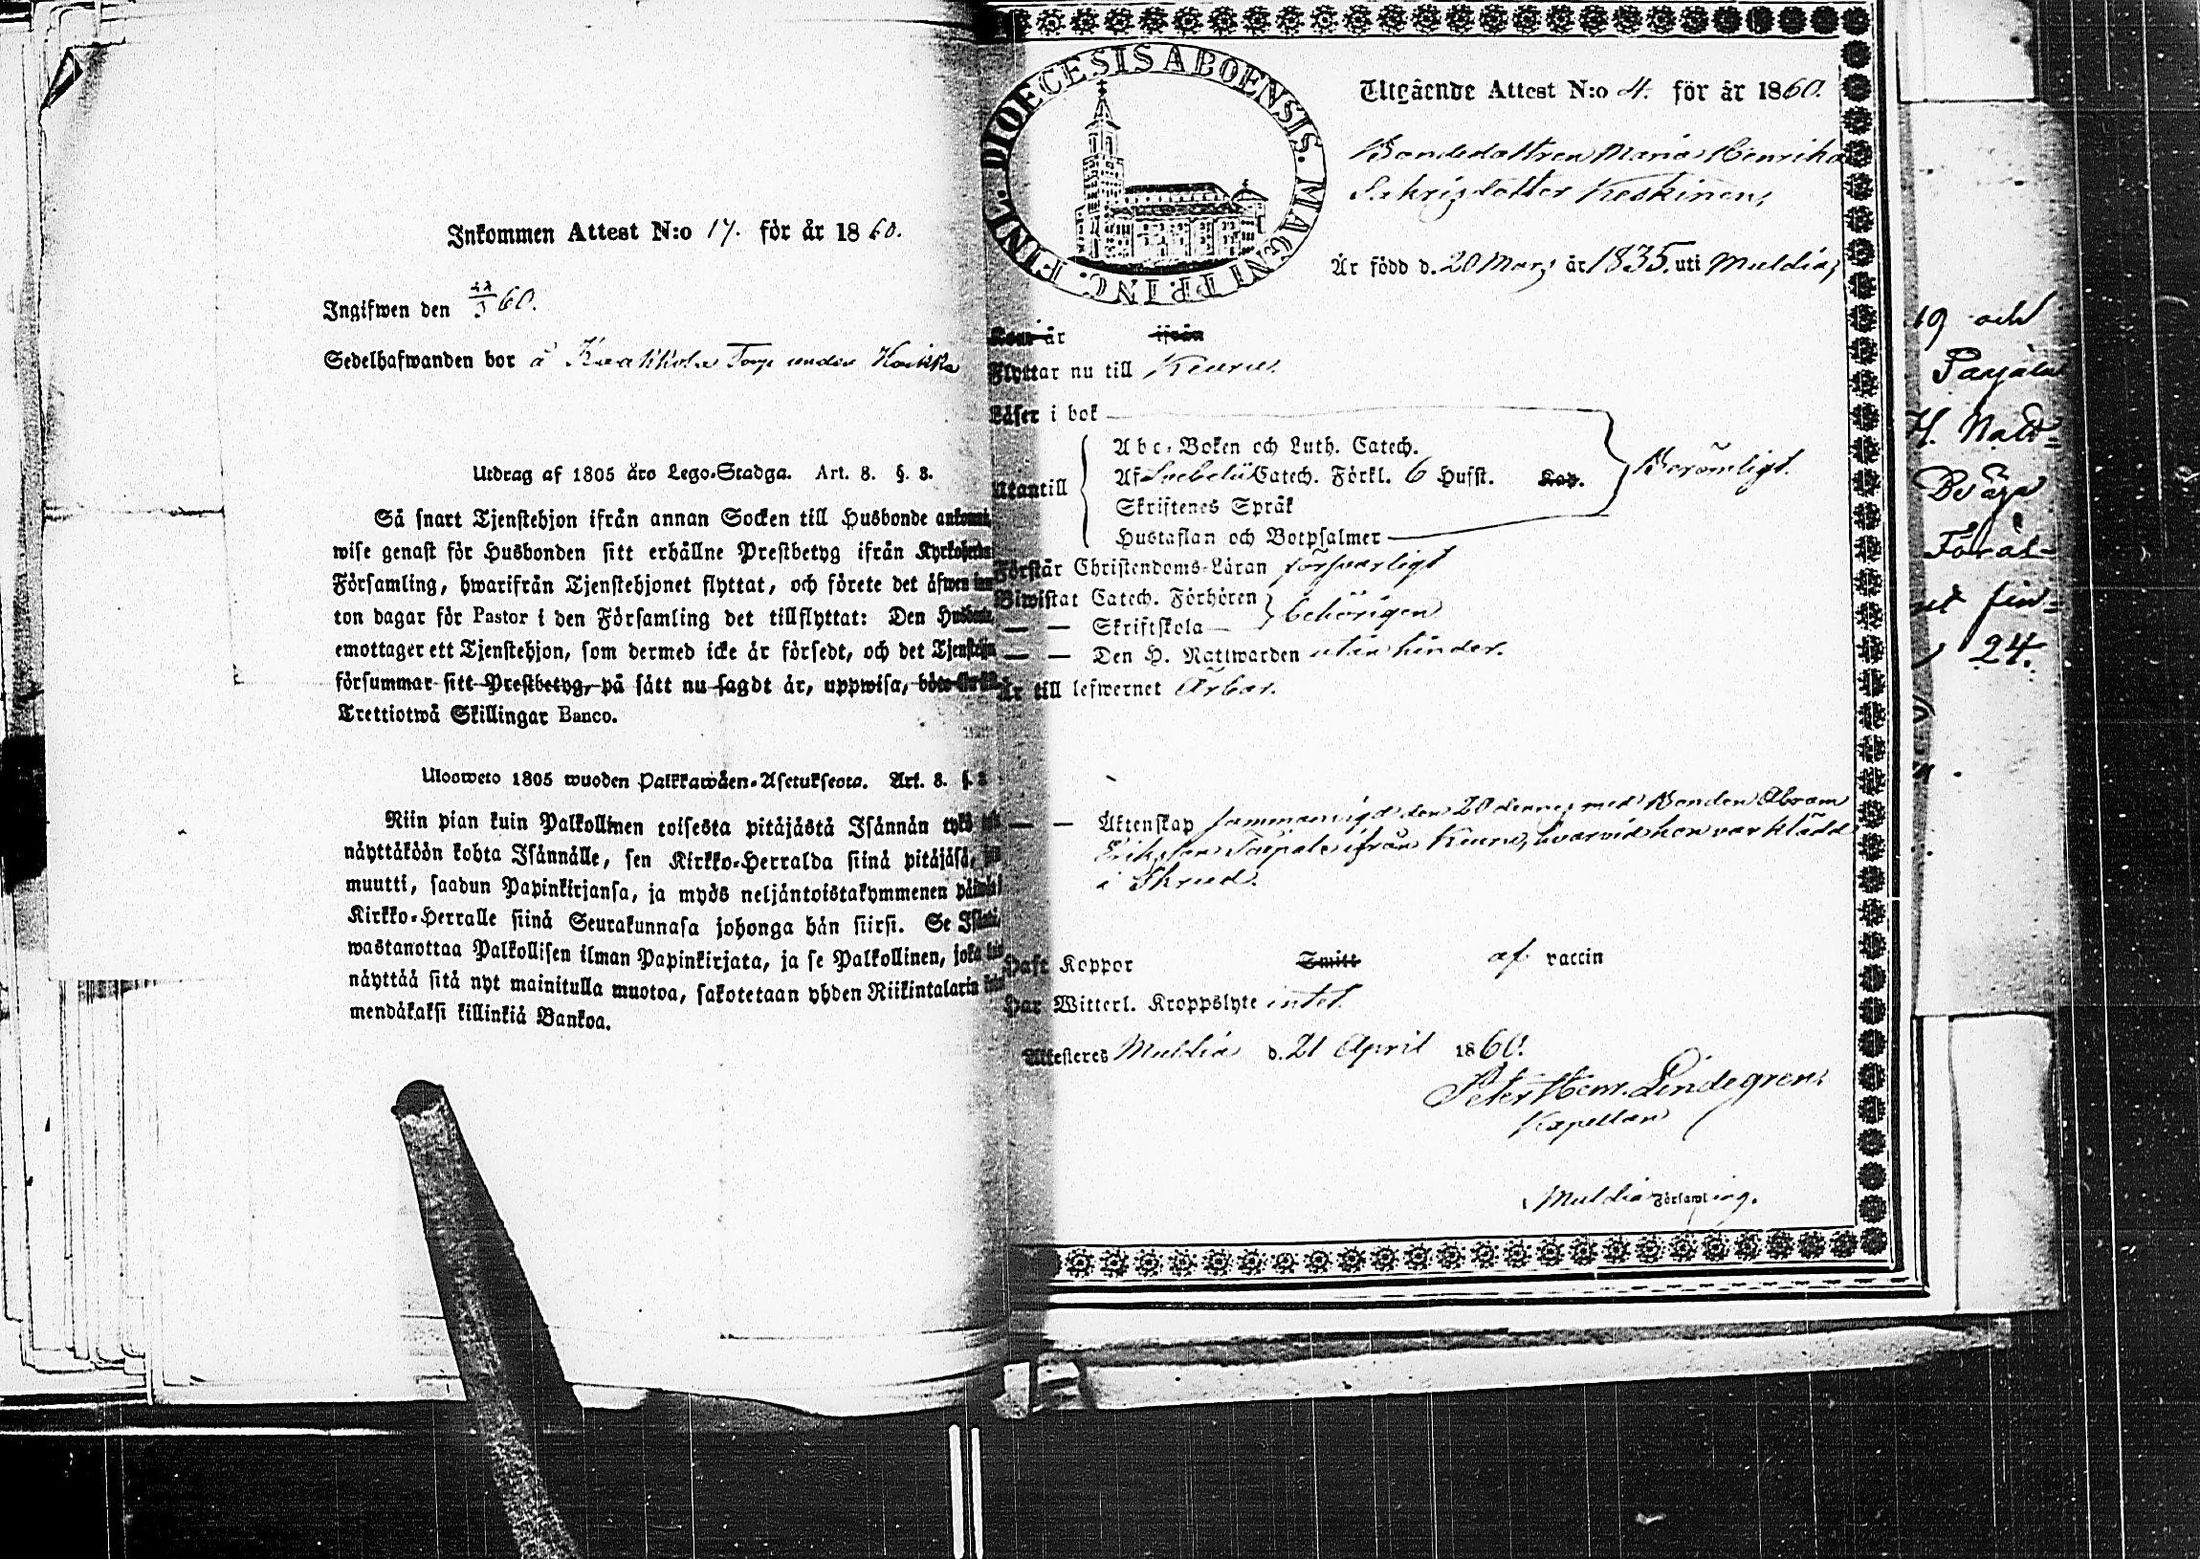 Inkommen Attest N:o 17. för år 1860.
Ingifwen den 60.
Sedelhafwanden bor å Torp under
Utdrag af 1805 års Lego-Stadga. Art. 8. §. 3.
Så snart Tjenstehjon ifrån annan Socken till Husbonde
wise genast för Husbonden sitt erhållne Prestbetyg ifrån
Församling, hwarifrån Tjenstehjonet flyttat, och förete det äfwen
ton dagar för Pastor i den Församling det tillflyttat: Den
emottager ett Tjenstehjon, som dermed icke är försedt, och det
försummar sitt Prestbetyg, på sätt nu sagdt är, uppwisa,
Trettiotwå Skillingar Banco.
Ulosweto 1805 wuoden Palkkawäen-Asetuksesta. Art. 8. §. 3
Niin pian kuin Palkollinen toisesta pitäjästä Isännän tykö
näyttäköön kohta Isännälle, sen Kirkko-Herralda siinä pitäjäsä,
muutti, saadun Papinkirjansa, ja myös neljäntoistakymmenen
Kirkko-Herralle siinä Seurakunnasa johonga hän siirsi. Se
wastanottaa Palkollisen ilman Papinkirjata, ja se Palkollinen, joka
näyttää sitä nyt mainitulla muotoa, sakotetaan yhden Riikintalarin
mendäkaksi killinkiä Bankoa.
FINL. DIOECESIS ABOENSIS. MAGNI PRINC.
Utgående Attest N:o 4. för år 1860.
Bondedottren Maria Henrika
Keskinen,
Är född d. 20 Mars år 1835. uti Muldia,
Kom år ifrån
Flyttar nu till Keuru.
Läser i bok
Abc-Boken och Luth. Catech.
Utantill
Af Svebelii Catech. Förkl. 6 Hufst. Kap.
Berömligt.
Skriftenes Språk
Hustaflan och Botpsalmer
Förstår Christendoms-Läran försvarligt
Biwistat Catech. Förhören
— — Skriftskola
behörigen
— — Den H. Nattwarden utan hinder.
Är till lefwernet Ärbar.
— — Äktenskap sammanvigd den 20 dennes med Bonden Abram
Eriksson ifrån Keuru, hvarvid hon var klädd
i Skrud.
Haft Koppor Smitt af vaccin
Har Witterl. Kroppslyte intet.
Attesteres Muldia d. 21 April 1860.
Peter Henr. Lindegren,
Kapellan
Muldia Församling.
19 och
H.
24.